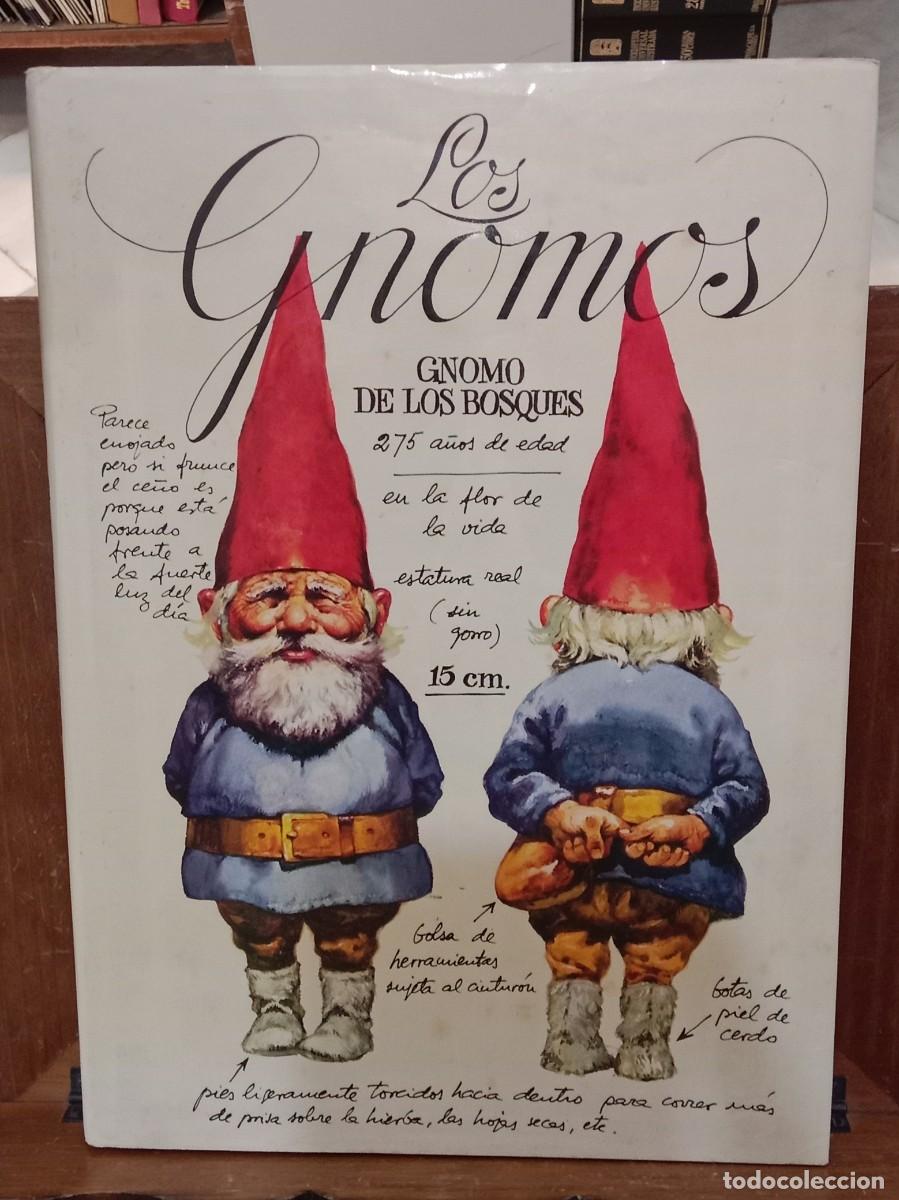 Los
Gnomos
GNOMO
DE LOS BOSQUES
275 años de edad
en la flor de
la vida
estatura real
(sin
gorro)
15 cm.
Parece
enojado
pero si frunce
el ceño es
porque está
posando
frente a
la fuerte
luz del
día
bolsa de
herramientas
sujeta al cinturón
botas de
piel de
cerdo
pies ligeramente torcidos hacia dentro para correr más
de prisa sobre la hierba, las hojas secas, etc.
todocoleccion